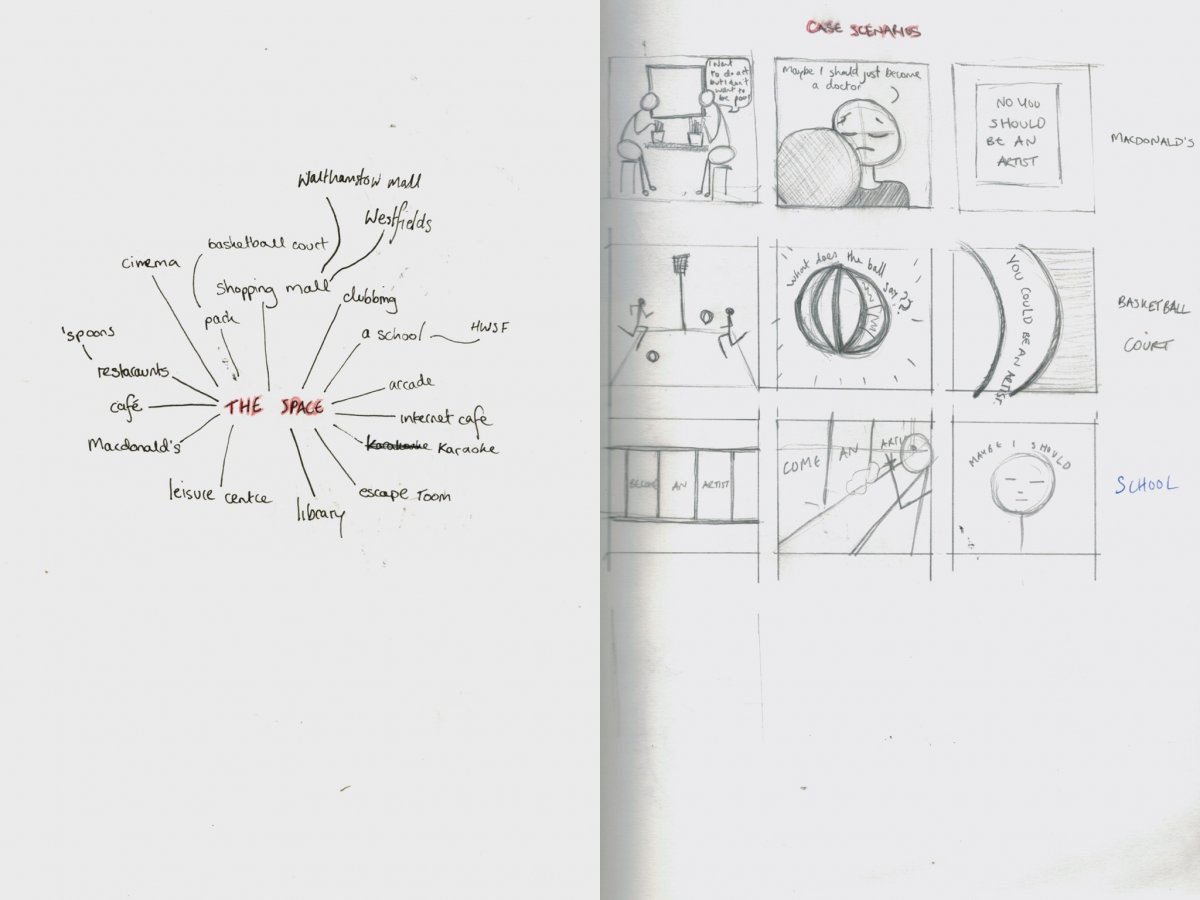 Walthamstow mall
Westfields
basketball court
cinema
shopping mall
clubbing
park
a school
HWSF
'spoons
restaraunts
arcade
café
THE SPACE
internet cafe
Macdonald's
Karaoke
leisure centre
escape room
library
CASE SCENARIOS
I want
to do art
but I don't
want to
be poor
Maybe I should just become
a doctor
NO YOU
SHOULD
BE AN
ARTIST
MACDONALD'S
What does the ball
say??
YOU COULD BE AN ARTIST
BASKETBALL
COURT
BECOME AN ARTIST
COME AN ARTI
MAYBE I SHOULD
SCHOOL